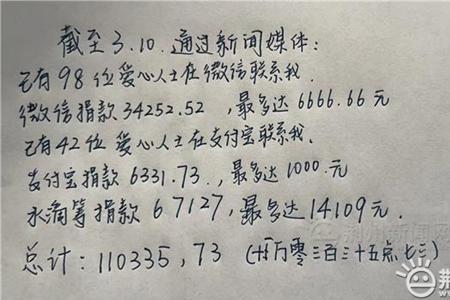 截至3.10.通过新闻媒体：
已有98位爱心人士在微信联系我.
微信捐款34252.52，最多达6666.66元
已有42位爱心人士在支付宝联系我.
支付宝捐款6331.73.，最多达1000.元
水滴筹捐款67127，最多达14109元.
总计：110335,73（拾万零三百三十五点七三）
荆州新闻网